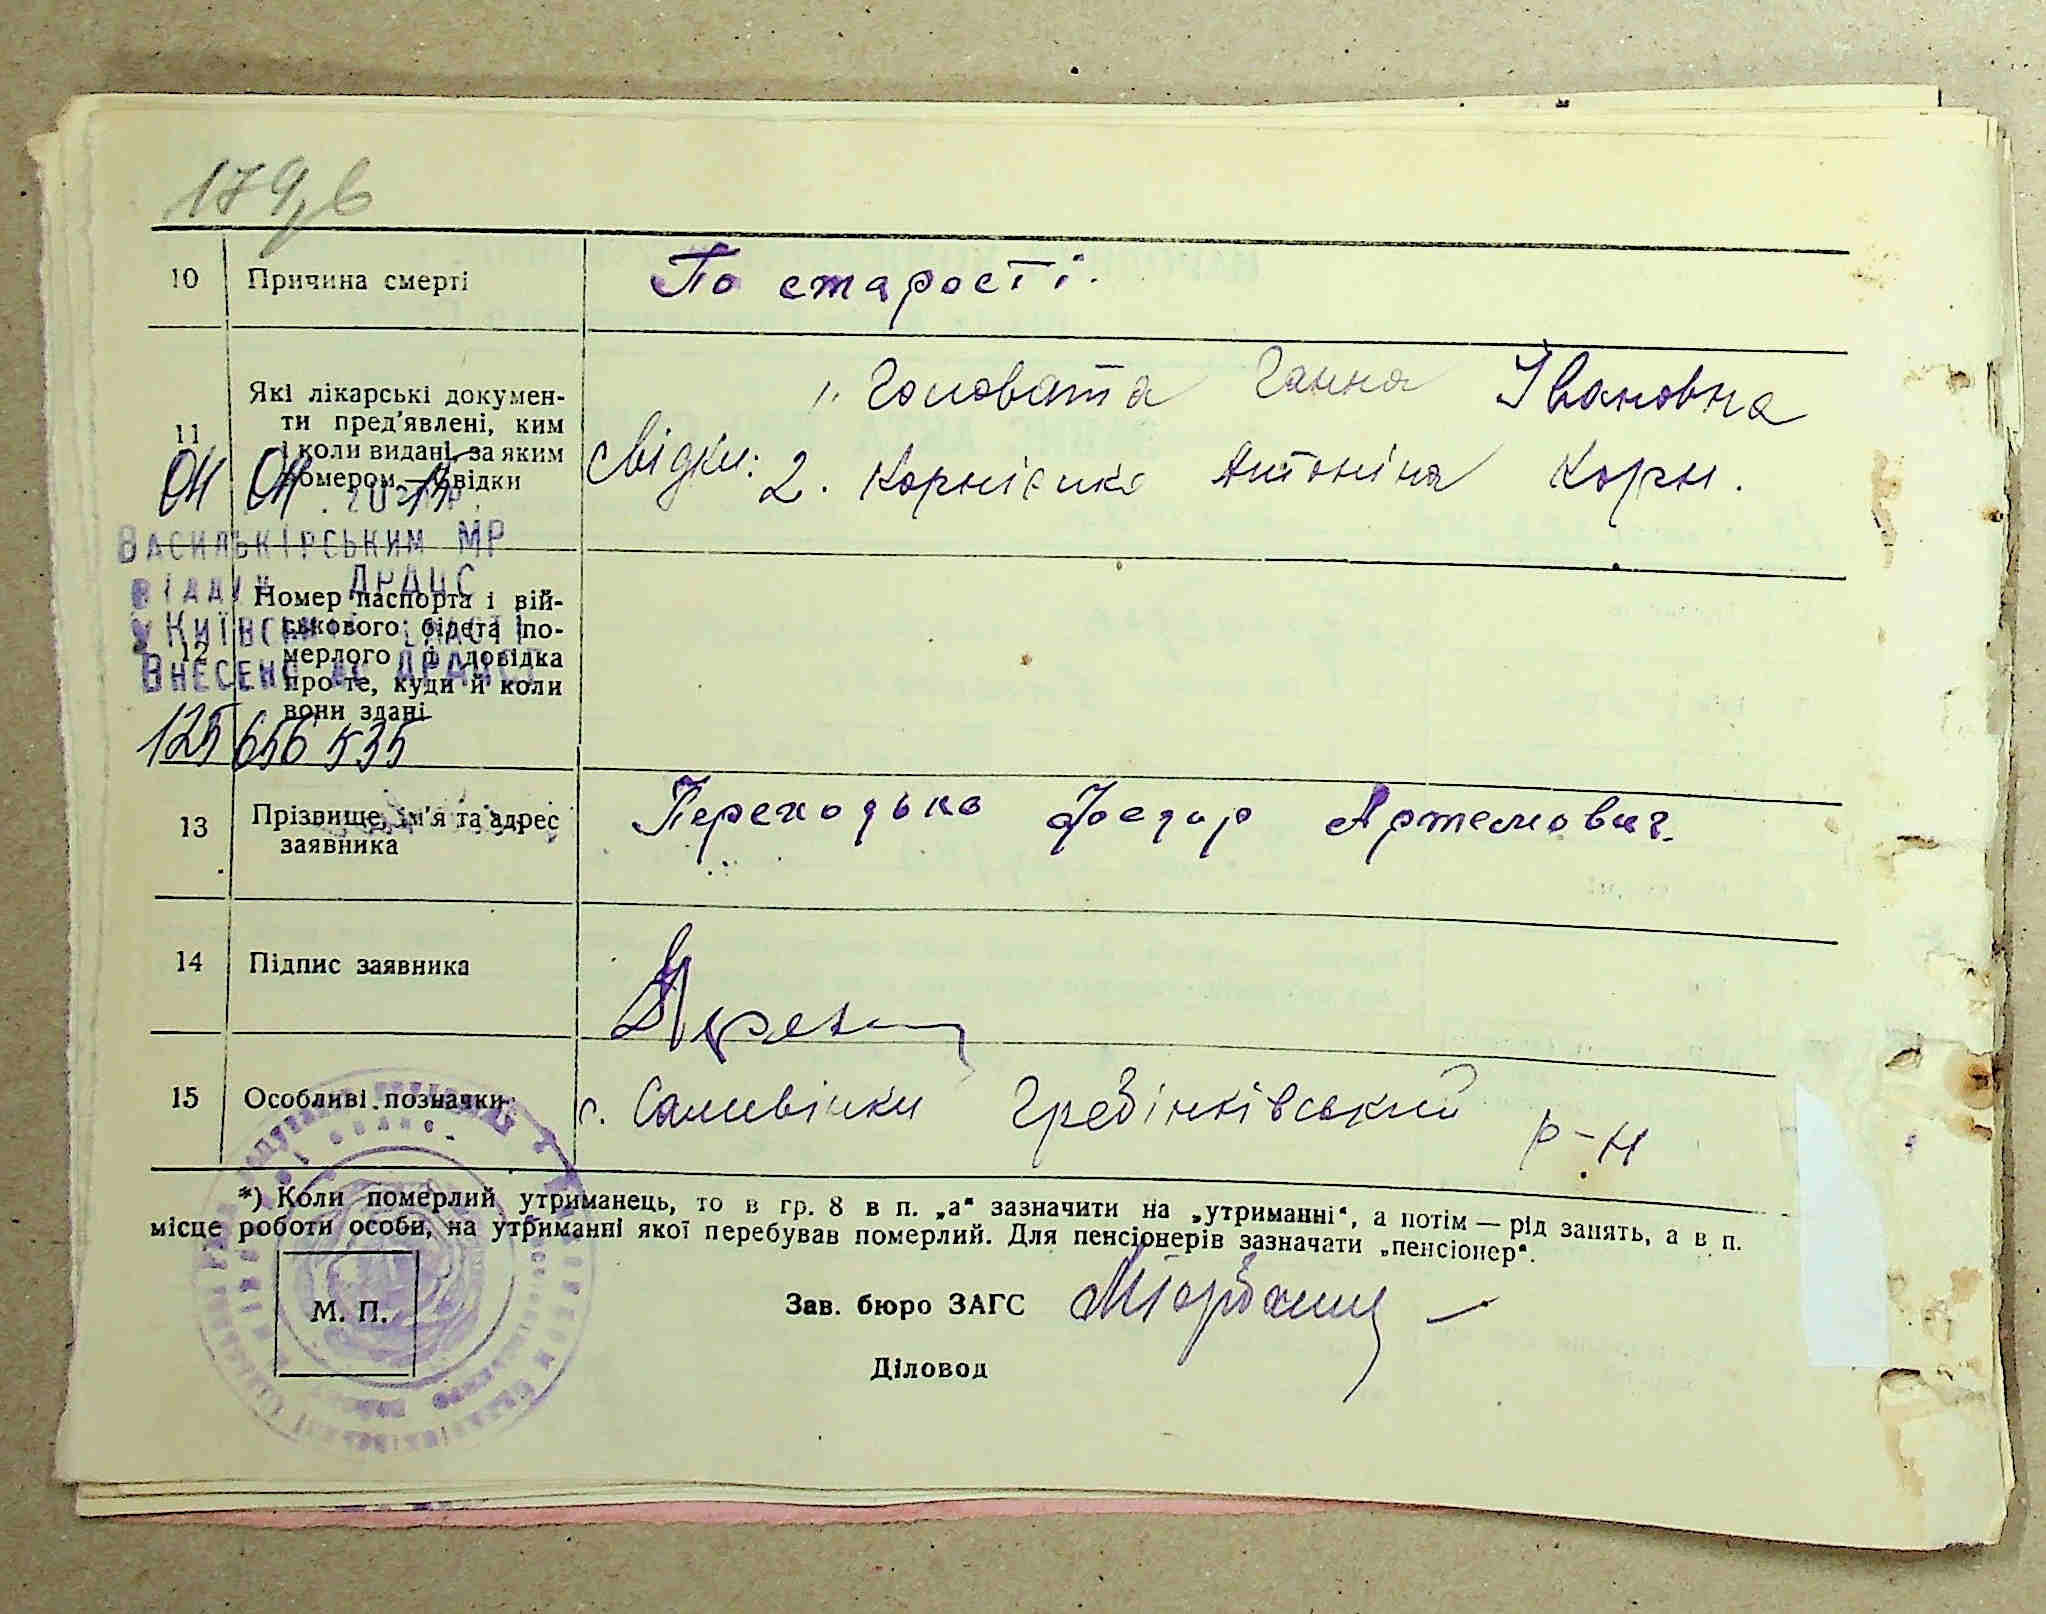 179,в
10 Причина смерті По старості.
11 Які лікарські докумен-
ти пред'явлені, ким
і коли видані, за яким
номером — свідки
свідки: 1. Головата Ганна Івановна
2. Корнієнко Антоніна Корн.
Васильківським МР
відділ ДРАЦС
у Київській області
Внесено до ДРАЦСГ
125 656 535
12 Номер паспорта і вій-
ськового білета по-
мерлого і довідка
про те, куди й коли
вони здані
13 Прізвище, ім'я та адрес
заявника
Переходько Федор Артемович.
14 Підпис заявника
15 Особливі позначки с. Саливінки Гребінківський р-н
*) Коли померлий утриманець, то в гр. 8 в п. „а“ зазначити на „утриманні“, а потім — рід занять, а в п.
місце роботи особи, на утриманні якої перебував померлий. Для пенсіонерів зазначати „пенсіонер“.
М. П.
Зав. бюро ЗАГС
Діловод